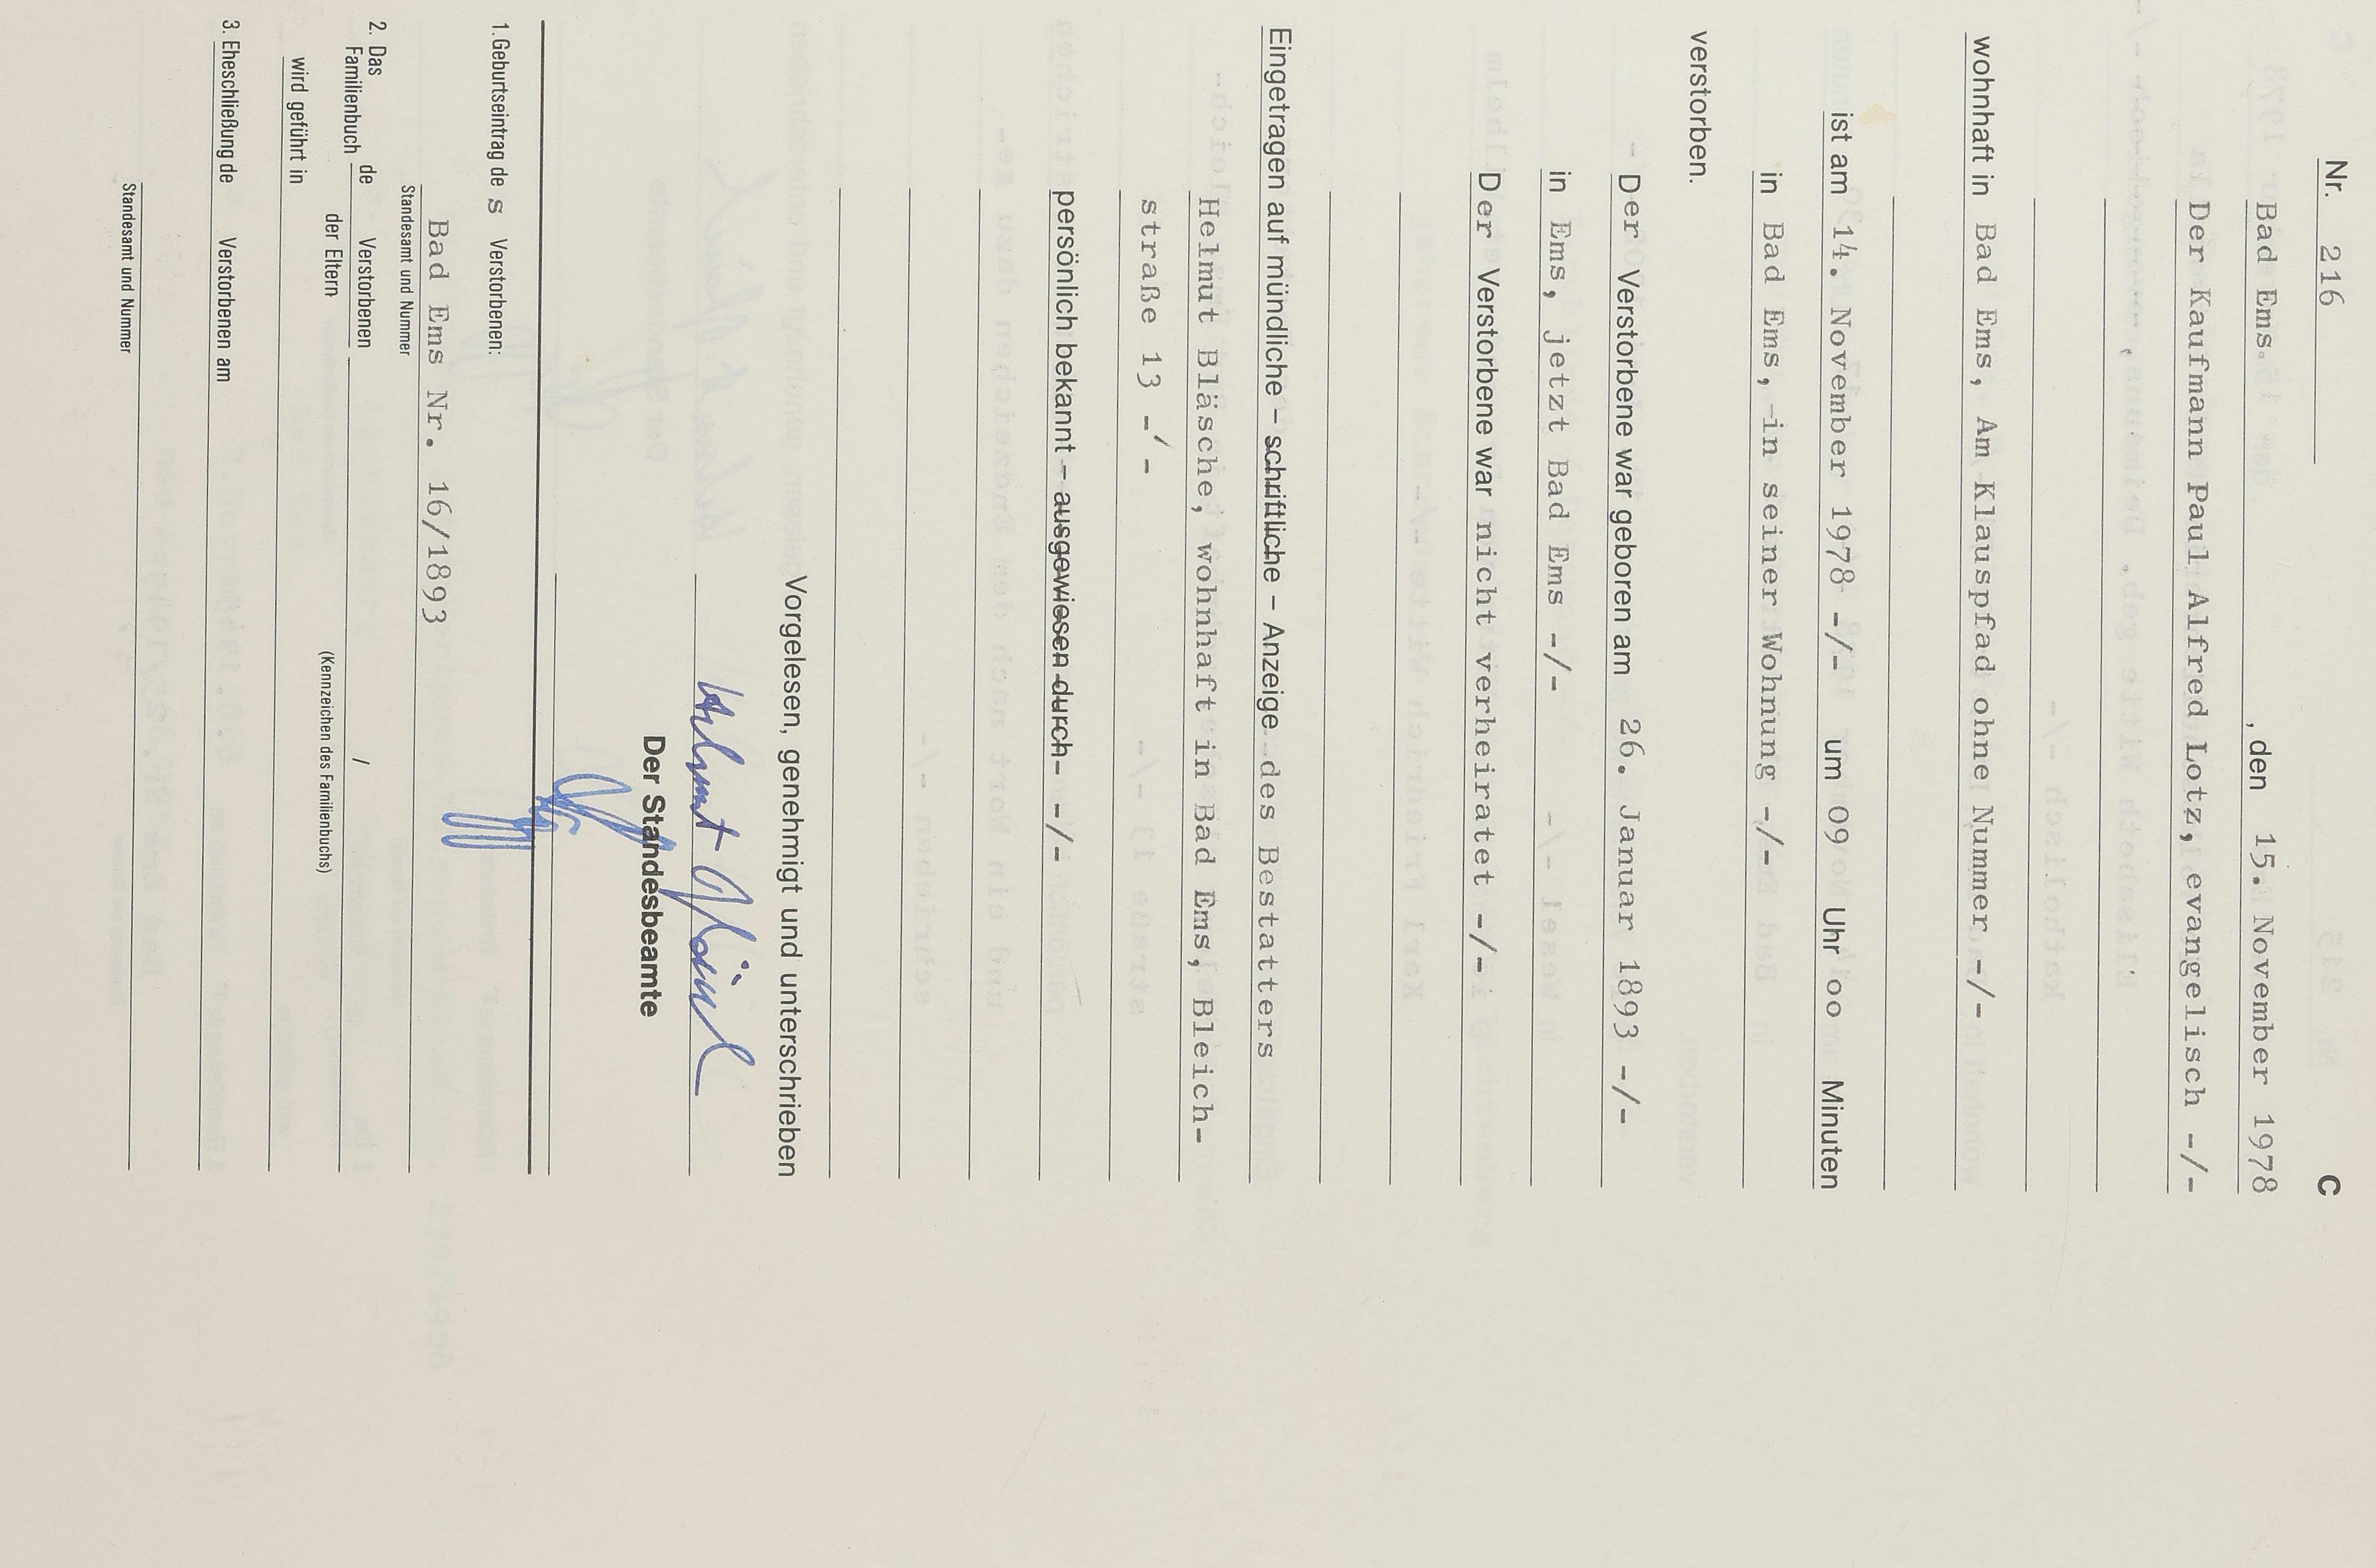 Nr. 216 C
Bad Ems, den 15. November 1978
Der Kaufmann Paul Alfred Lotz, evangelisch -/-
wohnhaft in Bad Ems, Am Klauspfad ohne Nummer -/-
ist am 14. November 1978 -/- um 09 Uhr oo Minuten
in Bad Ems, in seiner Wohnung -/-
verstorben.
Der Verstorbene war geboren am 26. Januar 1893 -/-
in Ems, jetzt Bad Ems -/-
Der Verstorbene war nicht verheiratet -/-
Eingetragen auf mündliche – schriftliche – Anzeige des Bestatters
Helmut Bläsche, wohnhaft in Bad Ems, Bleich-
straße 13 -/-
persönlich bekannt – ausgewiesen durch- -/-
Vorgelesen, genehmigt und unterschrieben
Helmut Bläsche
Der Standesbeamte
1. Geburtseintrag des Verstorbenen:
Bad Ems Nr. 16/1893
Standesamt und Nummer
2. Das Familienbuch de Verstorbenen / der Eltern
(Kennzeichen des Familienbuchs)
wird geführt in
3. Eheschließung de Verstorbenen am
Standesamt und Nummer